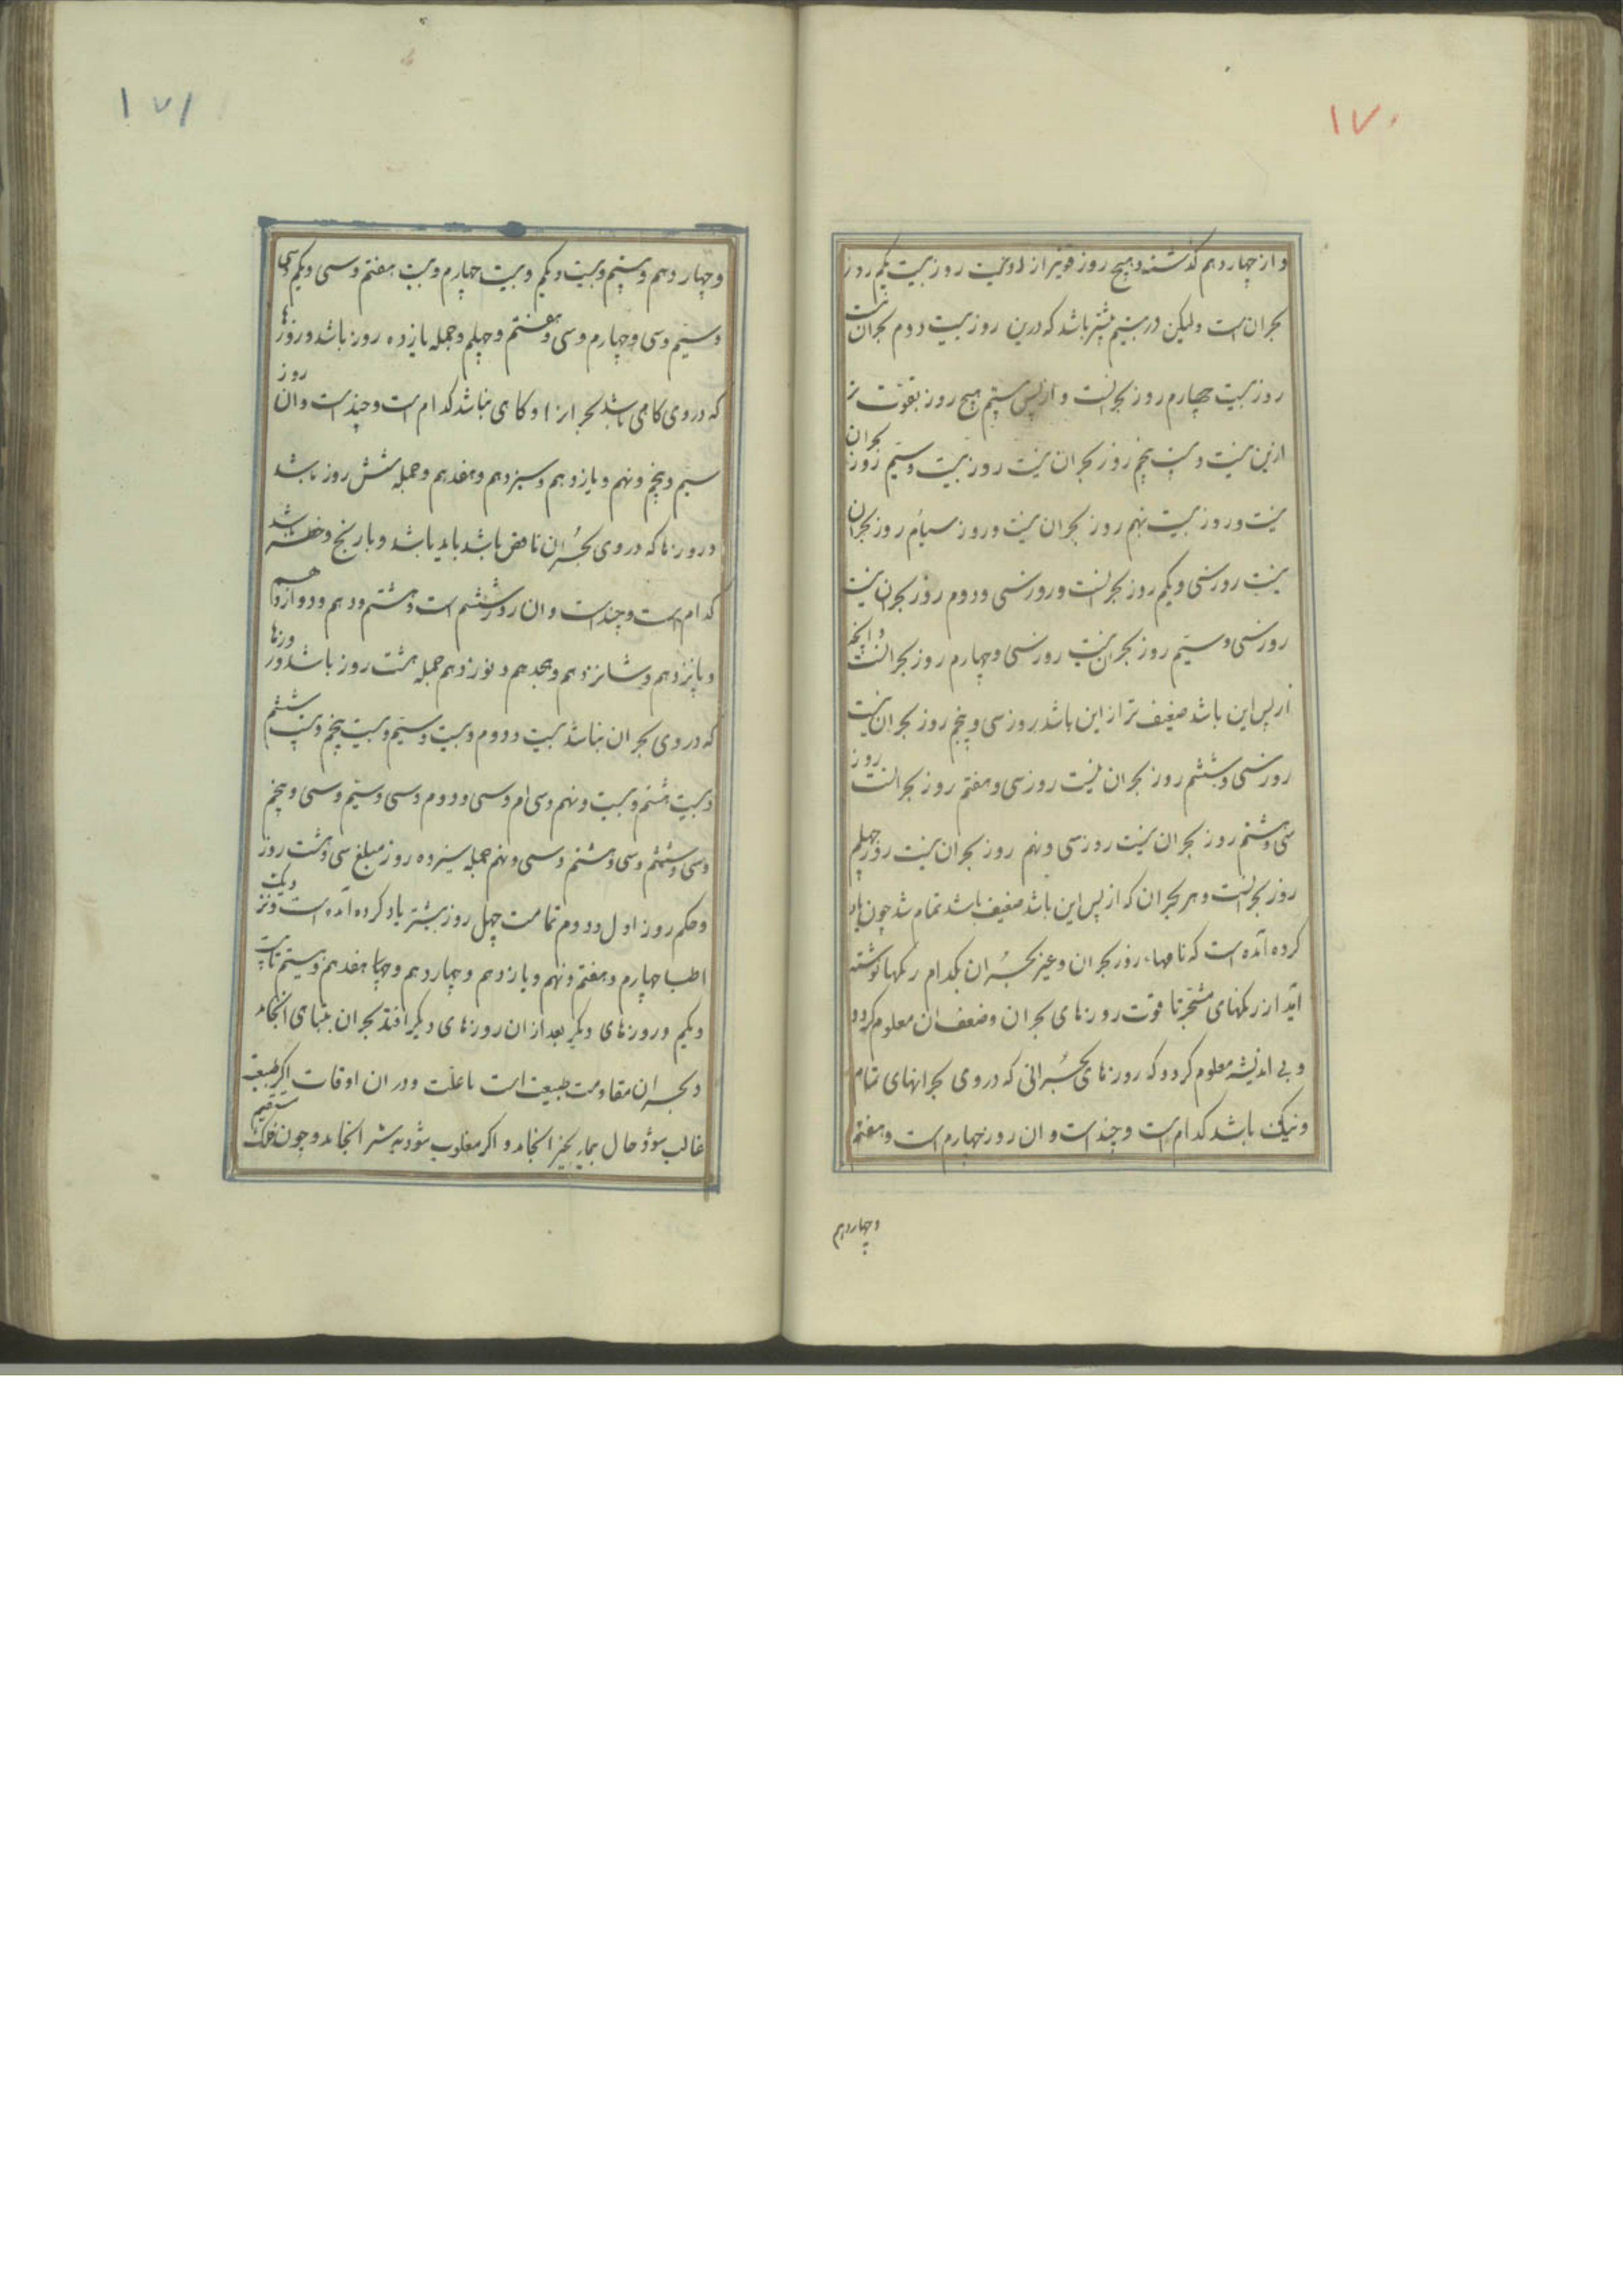 ۱۷۰
و از چهاردهم گذشته و هیچ روز قویتر از او نیست روز بیست یکم روز
بحران است ولیکن در بیستم بیشتر باشد که درین روز بیست دوم بحران نیست
روز بیست چهارم روز بحرانست و از پس بیستم هیچ روز بقوت تر
ازین نیست و بیست پنجم روز بحران نیست روز بیست و سیم روز بحران
نیست و روز بیست نهم روز بحران نیست و روز سیأم روز بحران
نیست روز سی و یکم روز بحرانست و روز سی و دوم روز بحران نیست
روز سی و سیم روز بحران نیست روز سی و چهارم روز بحرانست و انچه
از پس این باشد ضعیف تر از این باشد روز سی و پنجم روز بحران نیست
روز سی و ششم روز بحران نیست روز سی و هفتم روز بحرانست روز
سی و هشتم روز بحران نیست روز سی و نهم روز بحران نیست روز چهلم
روز بحرانست و هر بحران که از پس این باشد ضعیف باشد تمام شد چون یاد
کرده آمده است که نامهاء روز بحران و غیر بحران بکدام رنکها نوشته
آید از رنکهای مشجر تا قوت روزهای بحران و ضعف ان معلوم کردد
و بی اندیشه معلوم کردد که روزهای بحرانی که در وی بحرانهای تمام
و نیک باشد کدام است و چند است و ان روز چهارم است و هفتم
و چهاردهم
۱۷۱
و چهاردهم و بیستم و بیست و یکم و بیست چهارم و بیست هفتم و سی و یکم و سی
و سیم و سی و چهارم و سی و هفتم و چهلم و جمله یازده روز باشد و روزها
که در وی کامی باشد بحرانرا و کاهی نباشد کدام است و چند است و ان روز
سیم و پنجم و نهم و یازدهم و سیزدهم و هفدهم و جمله شش روز باشد
و روزها که در وی بحران ناقص باشد یا بد باشد و با رنج و خطر باشد
کدام است و چند است و ان روز ششم است و هشتم و دهم و دوازدهم
و پانزدهم و شانزدهم و هجدهم و نوزدهم جمله هشت روز باشد و روزها
که در وی بحران نباشد بیست و دوم و بیست و سیم و بیست پنجم و بیست ششم
و بیست هشتم و بیست و نهم و سی ام و سی و دوم و سی و سیم و سی و پنجم
و سی و ششم و سی و هشتم و سی و نهم جمله سیزده روز مبلغ سی و هشت روز
و حکم روز اول و دوم تمامت چهل روز بیشتر یاد کرده آمده است و نزدیک
اطبا چهارم و هفتم و نهم و یازدهم و چهاردهم و هفدهم و بیستم تا بیست
و یکم و روزهای دیگر بعد از ان روزهای دیگر افتد بحران بتباهی انجامد
و بحران مقاومت طبیعت است با علت و در ان اوقات اکر طبیعت
غالب شود حال بیمار بخیر انجامد و اکر مغلوب شود بشر انجامد و چون فلک مستقیم